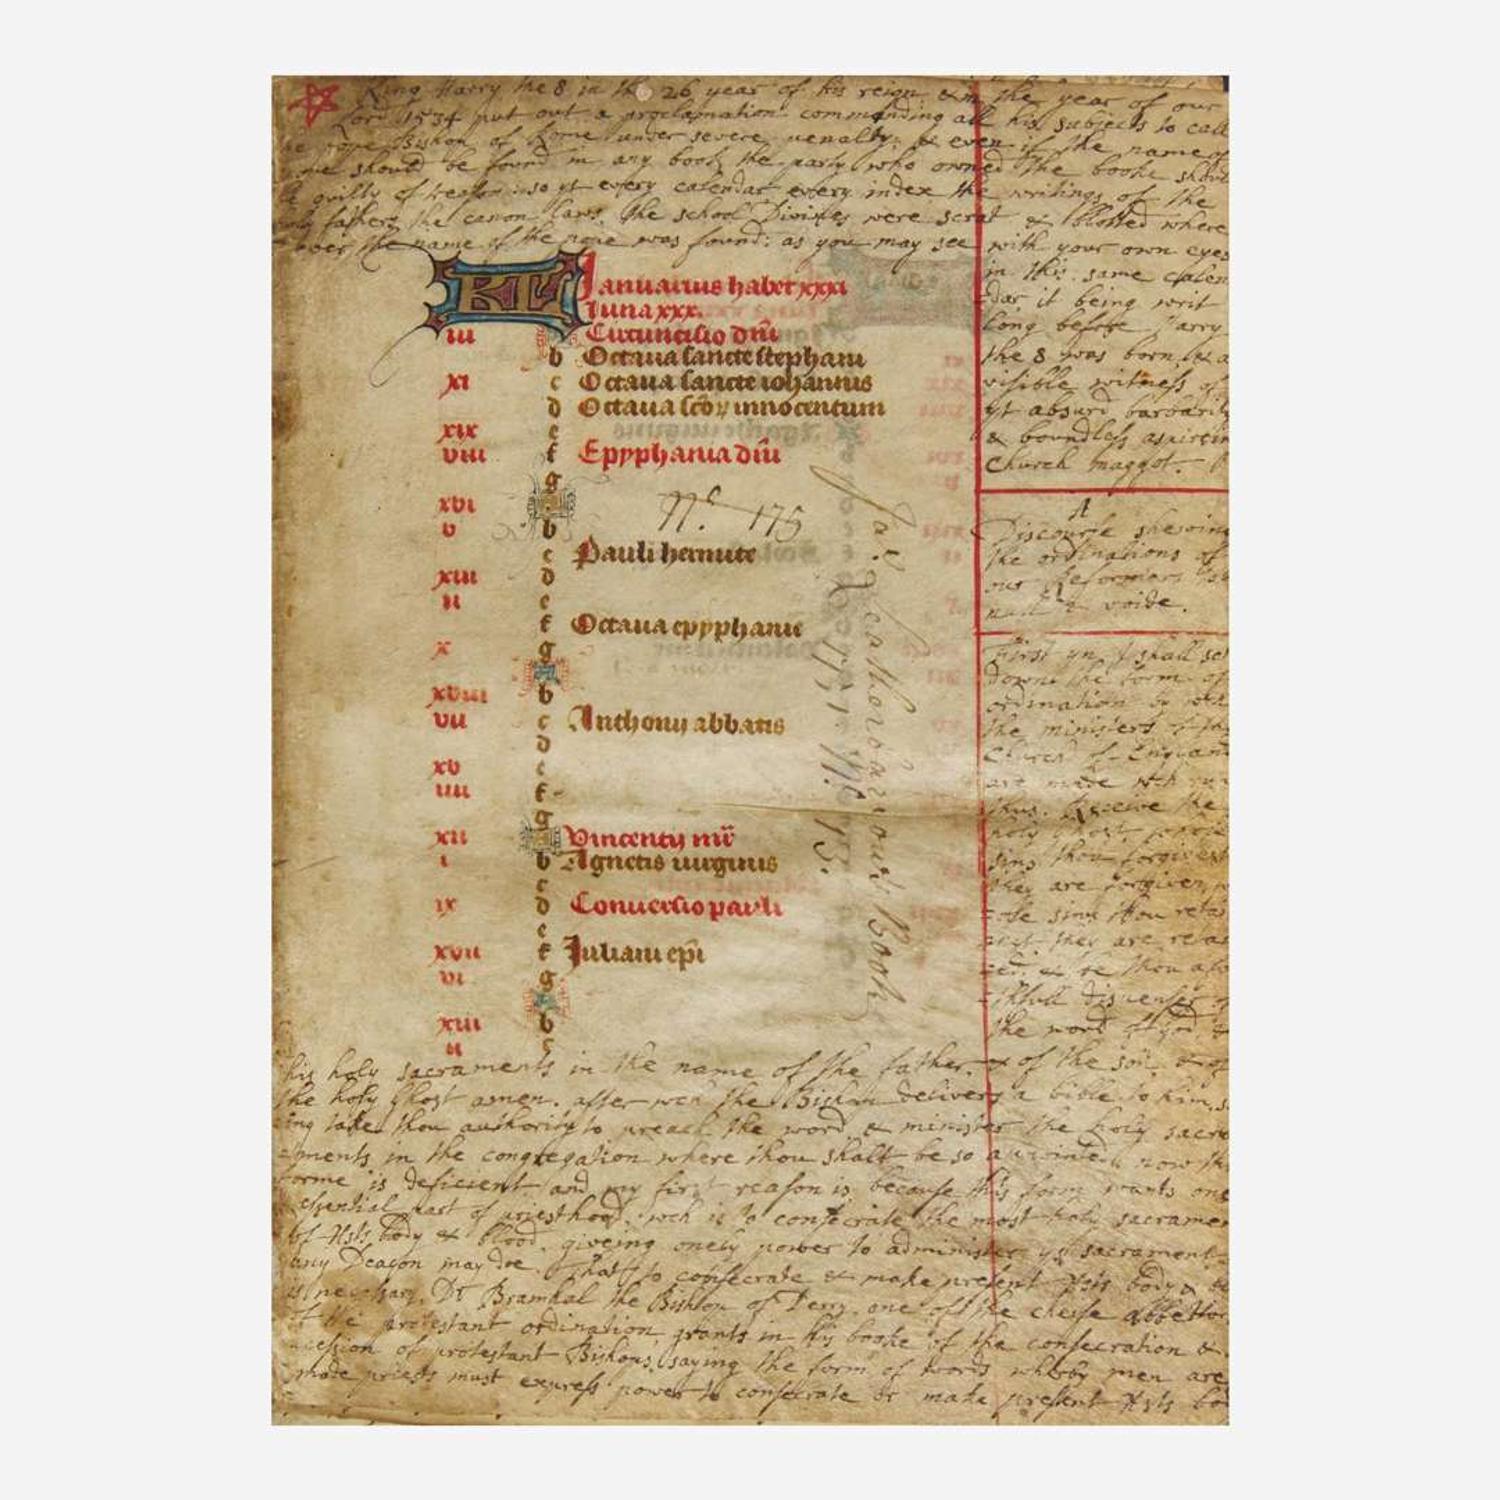 King Harry the 8 in the 26 year of his reign & in the year of our
Lord 1534 put out a proclamation commanding all his subjects to call
the pope Bishop of Rome under severe penalty, & even if the name of
pope should be found in any book the party who owned the booke should
be guilty of treason: so yt every calendar every index the writings of the
holy fathers the canon laws, the school Divines were scrat & blotted where
ever the name of the pope was found: as you may see with your own eyes
in this same calen
dar it being writ
long before Harry
the 8 was born, & a
visible witness of
yt absurd barbarity
& boundless aspirein
Church maggot.
A
Discourse shewing
the ordinations of
our Reformers
null & voide.
First yn I shall set
downe the form of
ordination by wch
the ministers of the
Church of England
are made wch run
thus. Receive the
holy Ghost, whose
sins thou forgivest
they are forgiven,
=ose sins thou retai
nest they are retai
=ed: & be thou a fa
=ithfull dispenser of
the word of God &
KL Januarius habet xxxi
luna xxx.
iii Circuncisio dni
b Octaua sancte stephani
xi c Octaua sancte iohannis
d Octaua scoꝝ innocentum
xix e
viii f Epyphania dni
g
xvi
v b
c Pauli hermite
xiii d
ii e
f Octaua epyphanie
x g
xviii b
vii c Anthonij abbatis
d
xv e
iiii f
g
xii Vincentij mr
i b Agnetis uirginis
c
ix d Conuersio pauli
e
xvii f Iuliani epi
vi g
xiiii b
c
No. 175
Jas Leatherbarrows Book
his holy sacraments in the name of the father & of the son & of
the holy Ghost amen. after wch the Bishop delivers a bible to him, s
ing take thou authority to preach the word & minister the holy sacra
=ments in the congregation where thou shalt be so appointed: now this
forme is deficient and my first reason is because this form wants one
essential part of priesthood, wch is to consecrate the most holy sacramen
of Xsts body & blood, giveing onely power to administer ys sacrament
any Deacon may doe. that to consecrate & make present Xsts body &
is necessary, Dr Bramhal the Bishop of Derry, one of the cheife abbettor
of the protestant ordination grants in his booke of the consecration &
ccession of protestant Bishops, saying the form of words wherby men are
made priests must express power to consecrate or make present Xsts bo